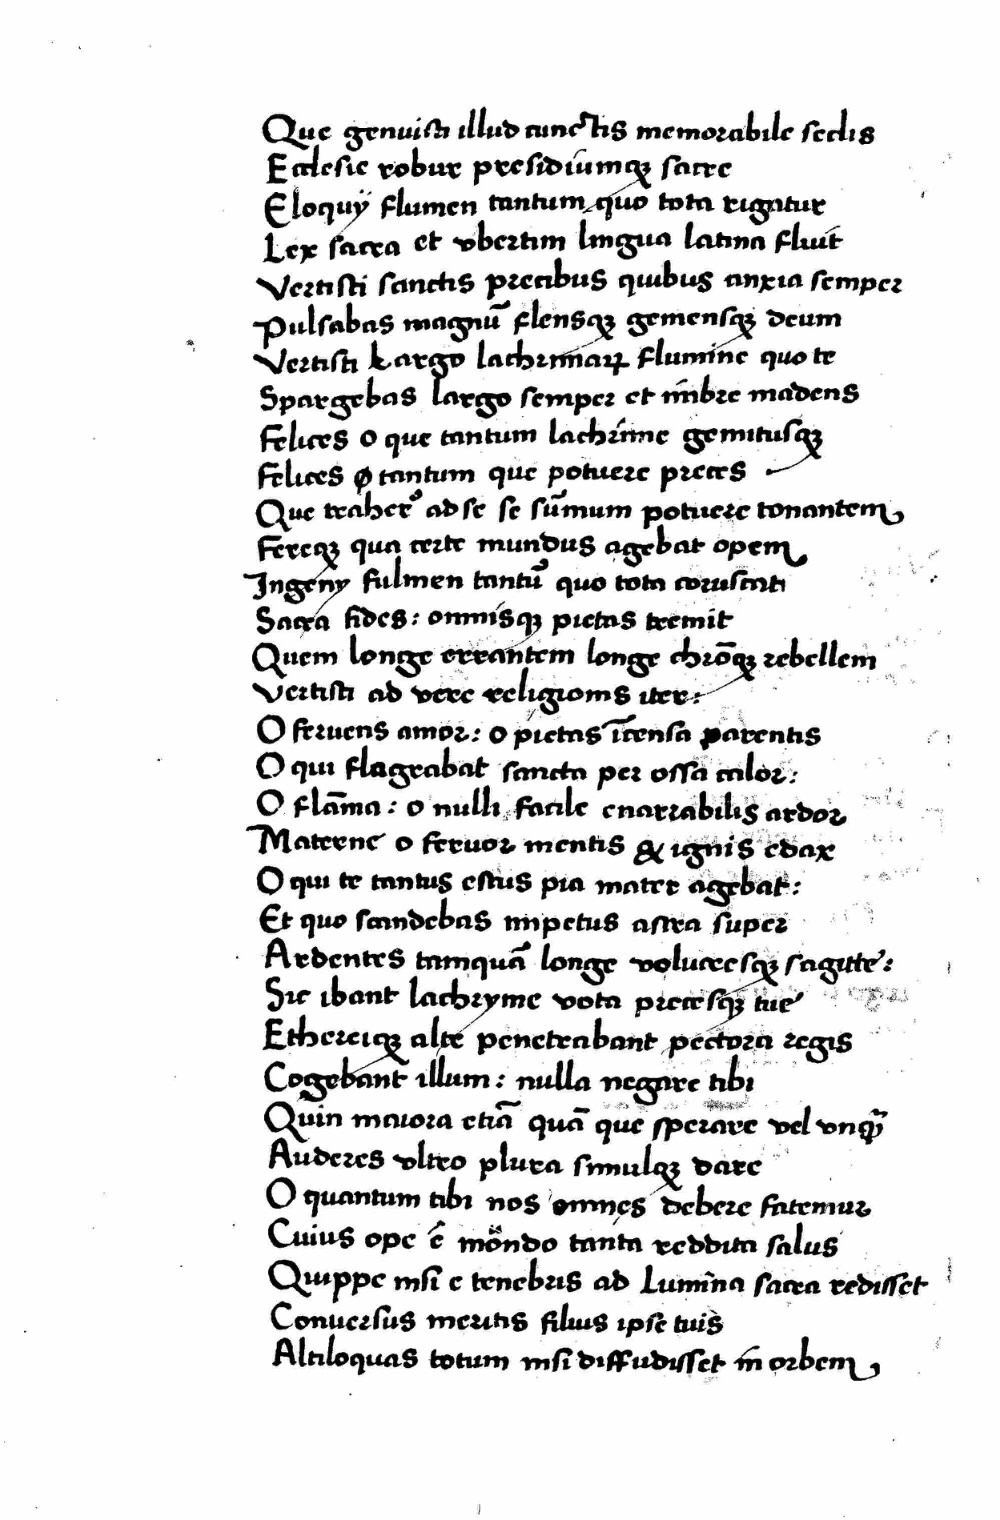 Que genuisti illud cunctis memorabile seclis
Ecclesie robur presidiumqꝫ sacre
Eloquÿ flumen tantum quo tota rigatur
Lex sacra et vbertim lingua latina fluit
Vertisti sanctis precibus quibus anxia semper
Pulsabas magnū flensqꝫ gemensqꝫ deum
Vertisti Largo lachrimaꝝ flumine quo te
Spargebas largo semper et imbre madens
Felices o que tantum lachrime gemitusqꝫ
Felices ø tantum que potuere preces
Que traher᾽ ad se se sūmum potuere tonantem
Fereqꝫ qua certe mundus agebat opem
Ingenÿ fulmen tantū quo tota coruscati
Sacra fides: omnisqꝫ pietas tremit
Quem longe errantem longe chrōqꝫ rebellem
Vertisti ad vere religionis iter:
O feruens amor: o pietas īcensa parentis
O qui flagrabat sancta per ossa calor:
O flāma: o nulli facile enarrabilis ardor
Materne o feruor mentis & ignis edax
O qui te tantus estus pia mater agebat:
Et quo scandebas impetus astra super
Ardentes tamquā longe volucresqꝫ sagitte:
Sic ibant lachryme vota precesqꝫ tue
Ethereiqꝫ alte penetrabant pectora regis
Cogebant illum: nulla negare tibi
Quin maiora etiā quā que sperare vel vnqꝫ̄
Auderes vltro plura simulqꝫ dare
O quantum tibi nos omnes debere fatemur
Cuius ope ē mōndo tanta reddita salus
Quippe nisi e tenebris ad Lumina sacra redisset
Conuersus meritis filius ipse tuis
Altiloquas totum nisi diffudisset in orbem,